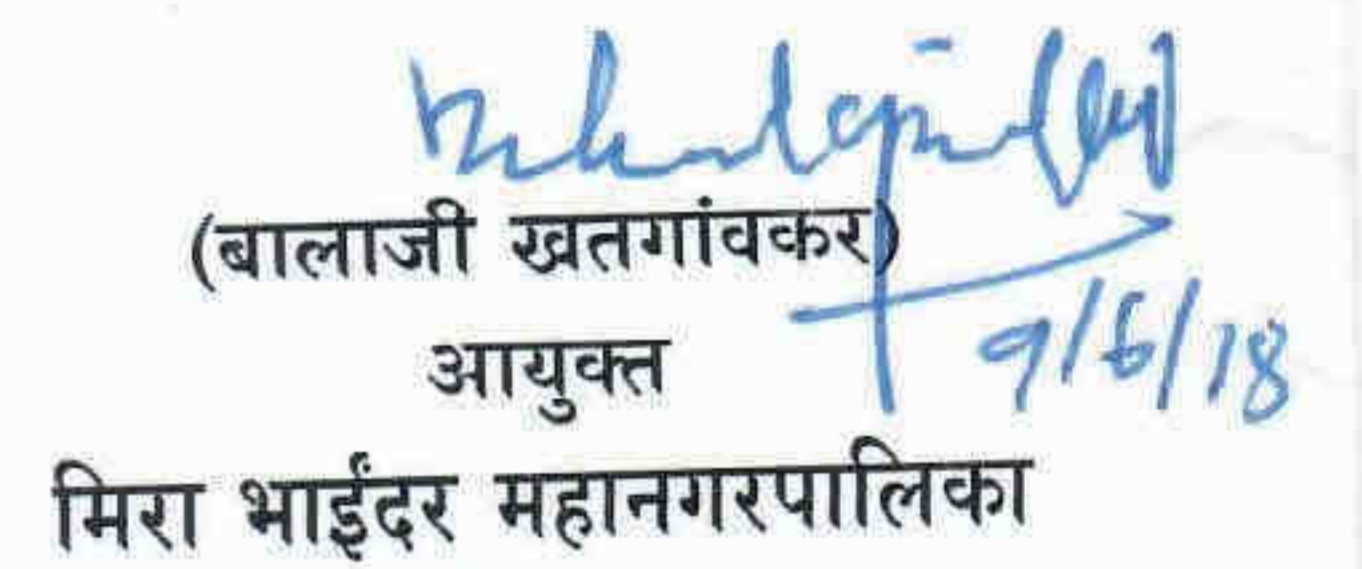 (बालाजी खतगांवकर)
9/6/18
आयुक्त
मिरा भाईंदर महानगरपालिका